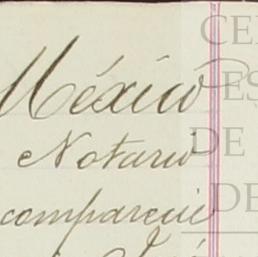 México
Notario
comparecie
CE
ES
DE
DE